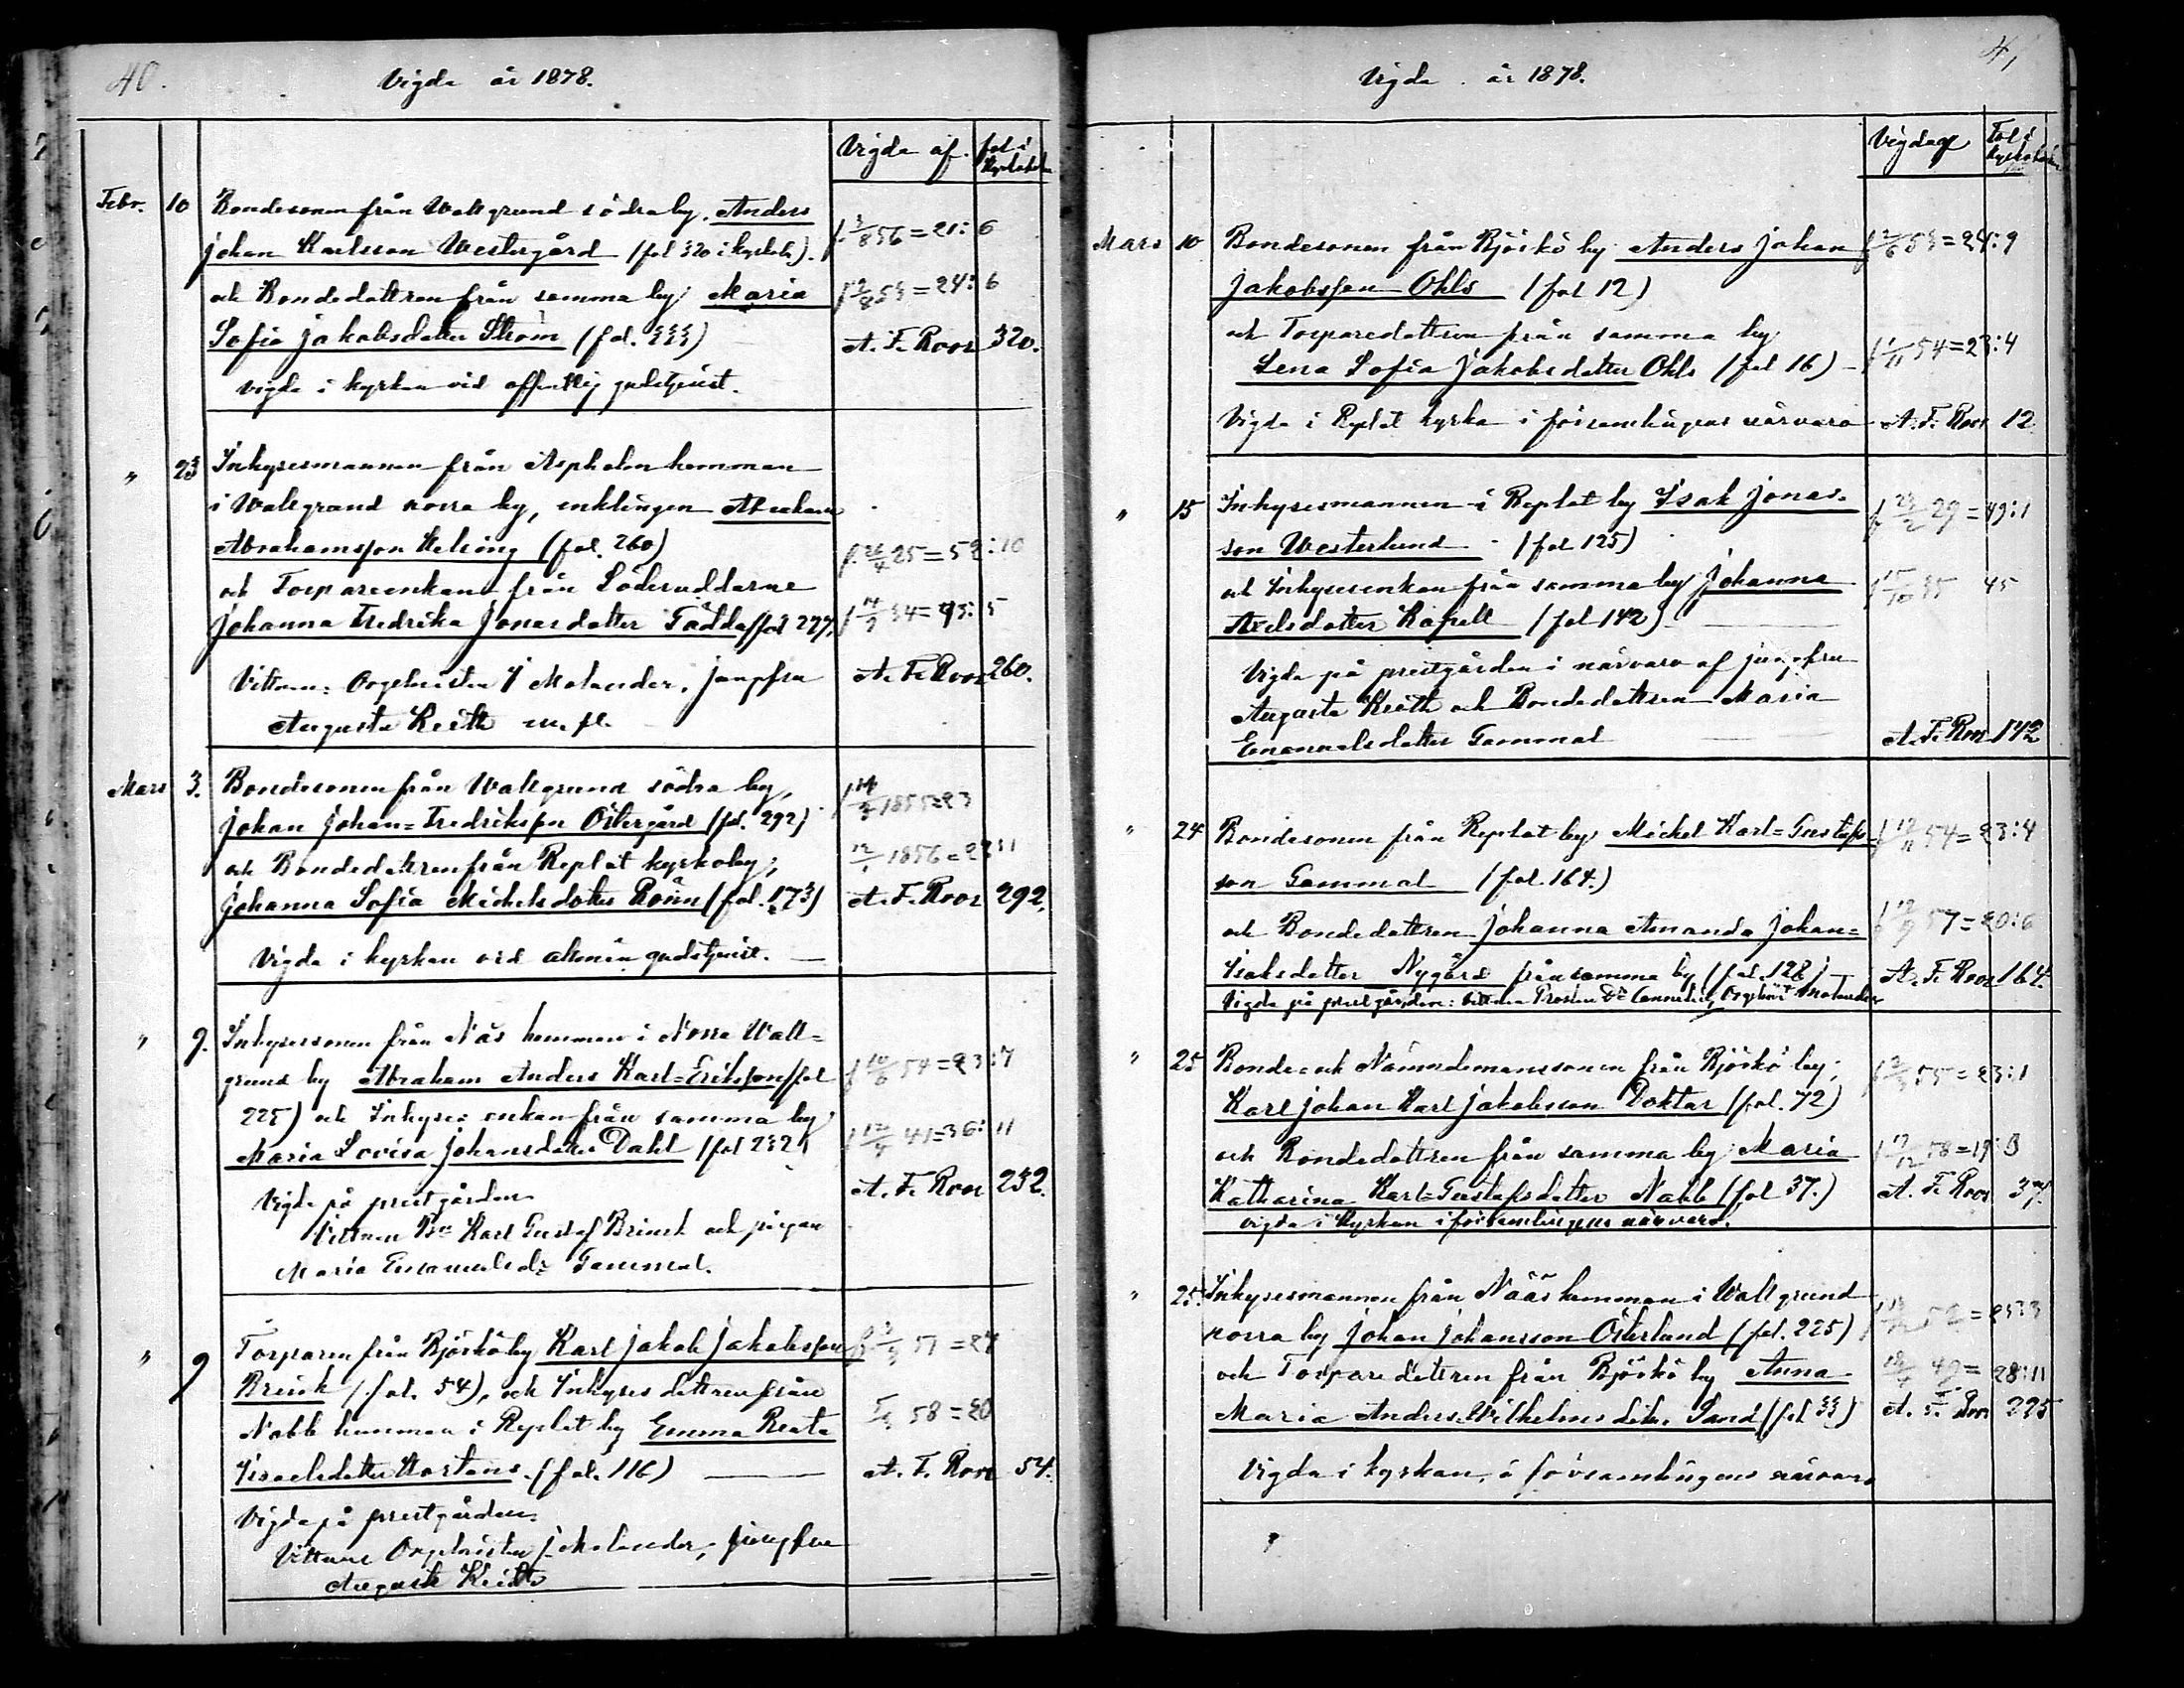 40.
Vigde år 1878.
Vigde af. fol i
Febr. 10 Bondesonen från Wallgrund södra by, Anders
Johan Karlsson Westergård (fol 320 i kyrkob.). f. 3/8 56 = 21:6
och Bondedottren från samma by Maria f 2/8 53 = 24:6
Sofia Jakobsdotter Ström (fol. 333) A. F. Roos 320.
vigde i kyrkan vid offentlig gudstjenst.
" 23 Inhysesmannen från Aspholm hemman
i Wallgrund norra by, enklingen Abraham
Abrahamsson Helsing (fol. 260) f. 26/4 25 = 52:10
och Torpareenkan från Söderuddarne
Johanna Fredrika Jonasdotter Fädda (fol 227) f 14/9 34 = 43:5
Vittnen: Orgelnisten J Molander, jungfru A. F. Roos 260.
Augusta Keith m. fl.
Mars 3. Bondesonen från Wallgrund södra by, f 14/3 1855=23
Johan Johan=Fredriksson Östergård (fol. 292)
och Bondedottren från Replot kyrkoby; 12/ 1856=22:11
Johanna Sofia Michelsdotter Rönn (fol. 173) A. F. Roos 292.
Vigde i kyrkan vid allmän gudstjenst.
" 9. Inhysessonen från Näs hemman i Norra Wall=
grund by Abraham Anders Karl=Eriksson (fol f 10/6 54 = 23:7
225) och Inhyses enkan från samma by
Maria Lovisa Johansdotter Dahl (fol 232) f 12/4 41=36:11
Vigde på prestgården A. F. Roos 232.
Vittnen Bn Karl Gustaf Brink och pigan
Maria Emanuelsdr Gammal.
" 9 Torparen från Björkö by Karl Jakob Jakobsson f 2/3 51 = 27
Brink (fol. 54), och Inhyses dottren från
Nabb hemman i Replot by Emma Beata 58=20
Israelsdotter Hortans. (fol. 116) A. F. Roos 54.
Vigde på prestgården
Vittne Orgelnisten J. Molander, jungfru
Augusta Keith
41
Vigde år 1878.
Vigde af Fol i
Mars 10 Bondesonen från Björkö by Anders Johan f 2/6 53=24:9
Jakobsson Ohls (fol 12)
och Torparedottren från samma by
Lena Sofia Jakobsdotter Ohls (fol 16) f 1/11 54=23:4
Vigde i Replot kyrka i församlingens närvaro A. F. Roos 12
" 15 Inhysesmannen i Replot by Isak Jonas-
son Westerlund (fol 125) f 23/2 29 = 49:1
och Inhysesenkan från samma by Johanna f 15/10 45
Axelsdotter Kapell (fol 142)
Vigde på prestgården i närvaro af jungfru
Augusta Keith och Bondedottren Maria
Emanuelsdotter Gammal A. F. Roos 142
" 24 Bondesonen från Replot by Mickel Karl=Gustafs- f 12/11 54=23:4
son Gammal (fol. 164.)
och Bondedottren Johanna Amanda Johan= f 12/9 57=20:6
Isaksdotter Nygård från samma by (fol. 128) A. F. Roos 164.
Vigde på prestgården: vittnen Prosten Dr Orgelnist Molander
" 25 Bonde och Nämndemanssonen från Björkö by; f 2/ 55=23:1
Karl Johan Karl Jakobsson Doktar (fol. 72)
och Bondedottren från samma by Maria f 17/12 58=19:3
Katharina Karl=Gustafsdotter Nabb (fol 37.) A. F. Roos 37.
vigde i kyrkan i församlingens närvaro.
" 25 Inhysesmannen från Näås hemman i Wallgrund
norra by Johan Johansson Österlund (fol. 225) =25:3
och Torparedottren från Björkö by Anna 49= 28:11
Maria Anders Wilhelms dotter Sand (fol 33) A. F. Roos 225
Vigde i kyrkan, i församlingens närvaro